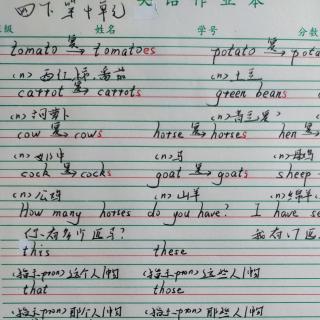 四下第十单元 英语作业本
班级 姓名 学号 分数
tomato 复→ tomatoes potato 复→ pota
(n) 西红柿.番茄 (n) 土豆
carrot 复→ carrots green beans
(n) 胡萝卜 (n)
cow 复→ cows horse 复→ horses hen 复→
(n) 奶牛 (n) 马 (n) 母鸡
cock 复→ cocks goat 复→ goats sheep
(n) 公鸡 (n) 山羊 (n) 绵羊
How many horses do you have? I have se
你有多少匹马? 我有
this these
(指示pron) 这个人/物 (指示pron) 这些人/物
that those
(指示pron) 那个人/物 (指示pron) 那些人/物